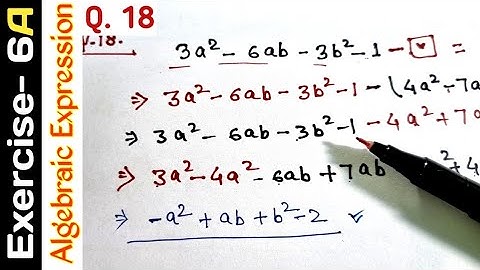 Exercise- 6A
Algebraic Expression
Q. 18
3a² - 6ab - 3b² - 1 - =
⇒ 3a² - 6ab - 3b² - 1 - (4a² - 7a
⇒ 3a² - 6ab - 3b² - 1 - 4a² + 7a
⇒ 3a² - 4a² - 6ab + 7ab
⇒ -a² + ab + b² - 2